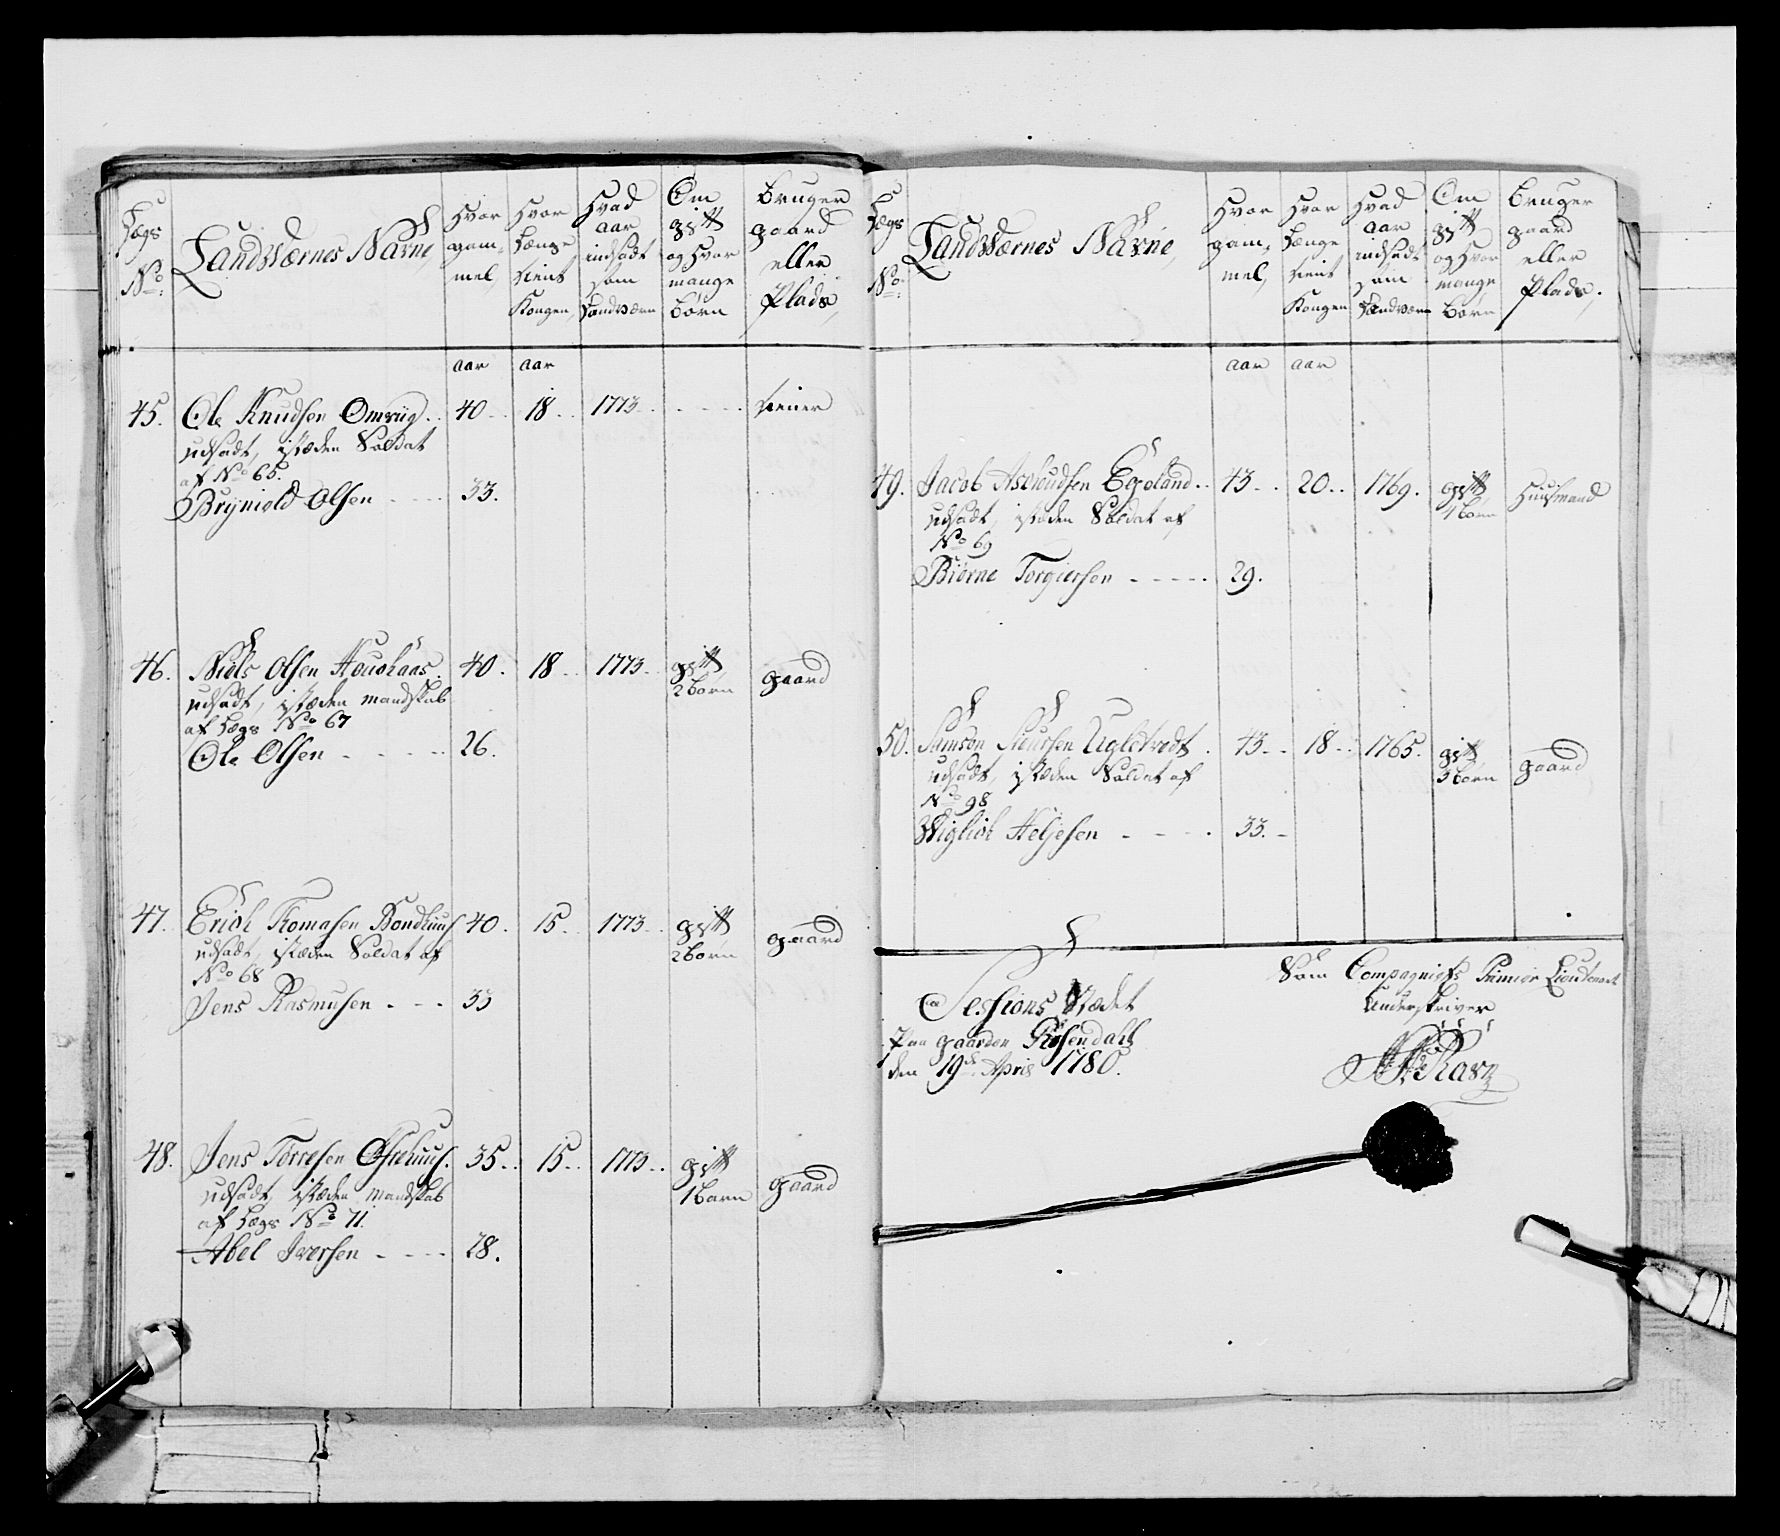 Lægs No:
Landværnes Navne,
Hvor gam- mel,
Hvor Længe tient Kongen,
Hvad Aar indsadt som Landværn
Om gift og Hvor mange Børn
Bruger gaard eller Plads,
aar aar
45. Ole Knudsen Omvüg. 40 18 1773 tiener
udsadt, istæden Soldat
af No 65.
Bryniold Olsen 33.
46. Niels Olsen 40. 18 1773 gift gaard
2 børn
udsadt, istæden mandskab
af Lægs No 67
Ole Olsen 26.
47. Erich Tomasen Bondhuus 40. 15 1773 gift gaard
2 børn
udsadt, istæden Soldat af
No 68
Jens Rasmusen 33
48. Jens Torresen 35 15 1773 gift gaard
1 barn
udsadt, istæden mandskab
af Lægs No 71.
Abel Iversen 28.
Lægs No:
Landværnes Navne,
Hvor gam- mel,
Hvor Længe tient Kongen
Hvad Aar indsadt som Landværn
Om gift og Hvor mange Børn
Bruger gaard eller Plads.
aar aar
49. Jacob Aslhudsen Egeland 43 20 1769. gift Huusmand
4 børn
udsadt, istæden Soldat af
No 69
Biørne Torgiersen 29.
50. Samson Siursen 43 18 1765. gift gaard
3 børn
udsadt, istæden Soldat af
No 98
Wiglich Heljesen 33.
Sessions Stædet
Paa gaarden Rosendahl
den 19de April 1780.
Som Compagniets Premier Lieutenant
Underskriver